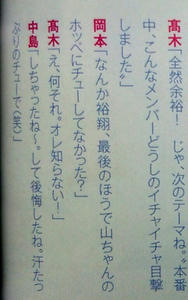 髙木「全然余裕！ じゃ、次のテーマね。"本番
中、こんなメンバーどうしのイチャイチャ目撃
しました"」
岡本「なんか裕翔、最後のほうで山ちゃんの
ホッペにチューしてなかった？」
髙木「え、何それ。オレ知らない！」
中島「しちゃったね〜。して後悔したね。汗たっ
ぷりのチューで〈笑〉」